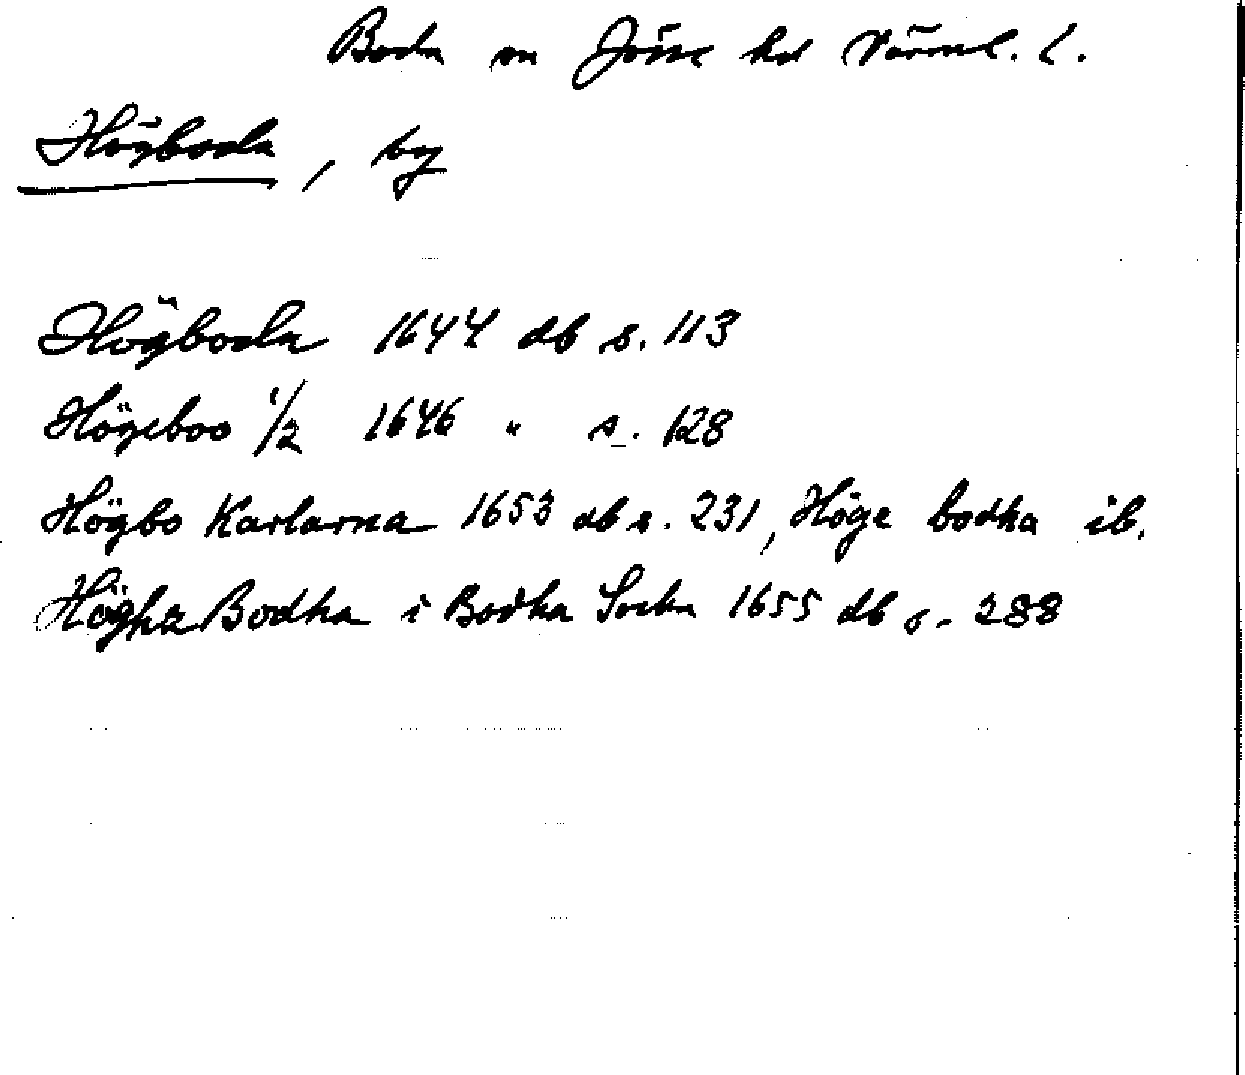 Boda sn Jösse hd Värml. l.
Högboda, by
Högboda 1644 db s. 113
Högeboo 1/2 1646 " s. 128
Högbo Karlarna 1653 db s. 231, Höge bodha ib.
Högha Bodha i Bodha Sockn 1655 db s. 288